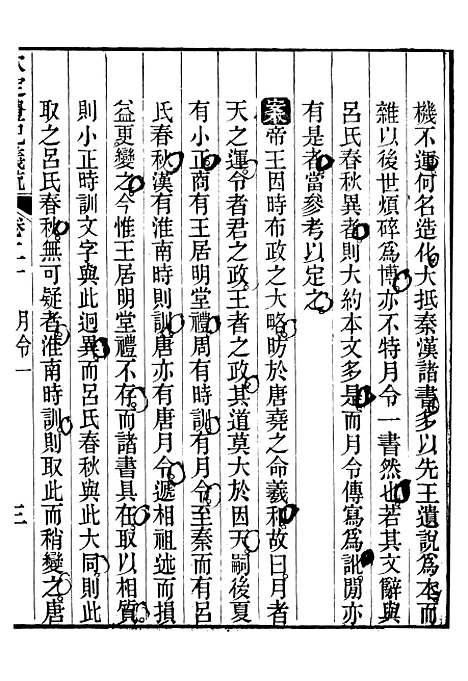 機不運何名造化大抵秦漢諸書多以先王遺說爲本而
雜以後世煩碎爲博亦不特月令一書然也若其文辭與
呂氏春秋異者則大約本文多是而月令傳寫爲訛閒亦
有是者當參考以定之
案帝王因時布政之大略昉於唐堯之命羲和故曰月者
天之運令者君之政王者之政其道莫大於因天嗣後夏
有小正商有王居明堂禮周有時訓有月令至秦而有呂
氏春秋漢有淮南時則訓唐亦有唐月令遞相祖述而損
益更變之今惟王居明堂禮不存而諸書具在取以相質
則小正時訓文字與此迥異而呂氏春秋與此大同則此
取之呂氏春秋無可疑者淮南時訓則取此而稍變之唐
欽定禮記義疏 卷二十 月令一 三